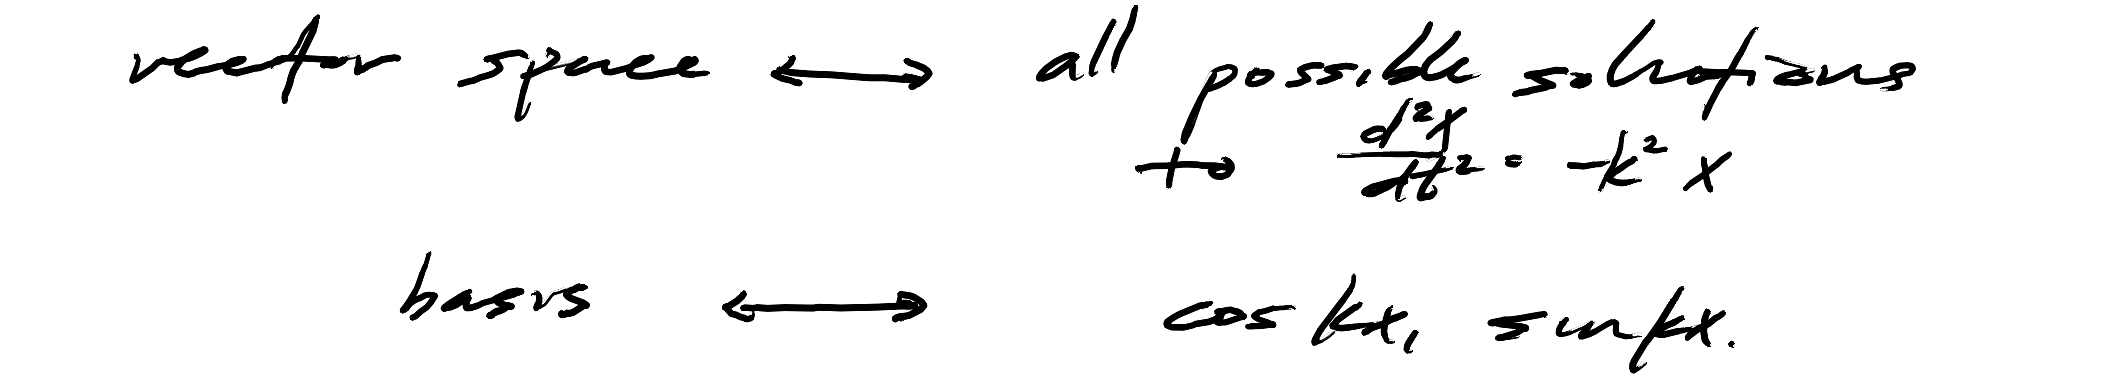 vector space ↔ all possible solutions
to d²x/dt² = -k² x
basis ↔ cos kx, sin kx.